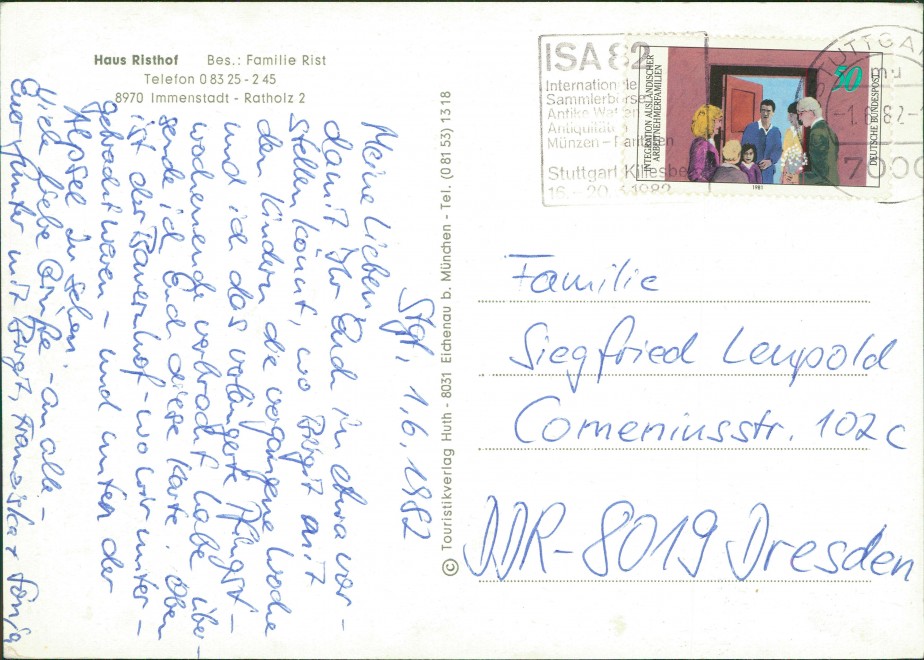 Haus Risthof Bes.: Familie Rist
Telefon 0 83 25 - 2 45
8970 Immenstadt - Ratholz 2
Stgt., 1.6.1982
Meine Lieben,
damit Ihr Euch in etwa vor-
stellen könnt, wo Birgit mit
den Kindern die vergangene Woche
und ich das verlängerte Pfingst-
wochenende verbracht habe über-
sende ich Euch diese Karte. Oben
ist der Bauernhof - wo wir unter-
gebracht waren - und unten der
Alpsee zu sehen.
Viele liebe Grüße - an alle -
Euer Günter mit Birgit, Franziska + Tanja
© Touristikverlag Huth - 8031 Eichenau b. München - Tel. (0 81 53) 13 18
ISA 82
Internationale
Sammlerbörse
Antike Waffen
Antiquitäten
Münzen - Raritäten
Stuttgart Killesberg
16. - 20. 6. 1982
INTEGRATION AUSLÄNDISCHER
ARBEITNEHMERFAMILIEN
50
DEUTSCHE BUNDESPOST
1981
STUTTGART
-1.6.82-
7000
Familie
Siegfried Leupold
Comeniusstr. 102c
DDR-8019 Dresden